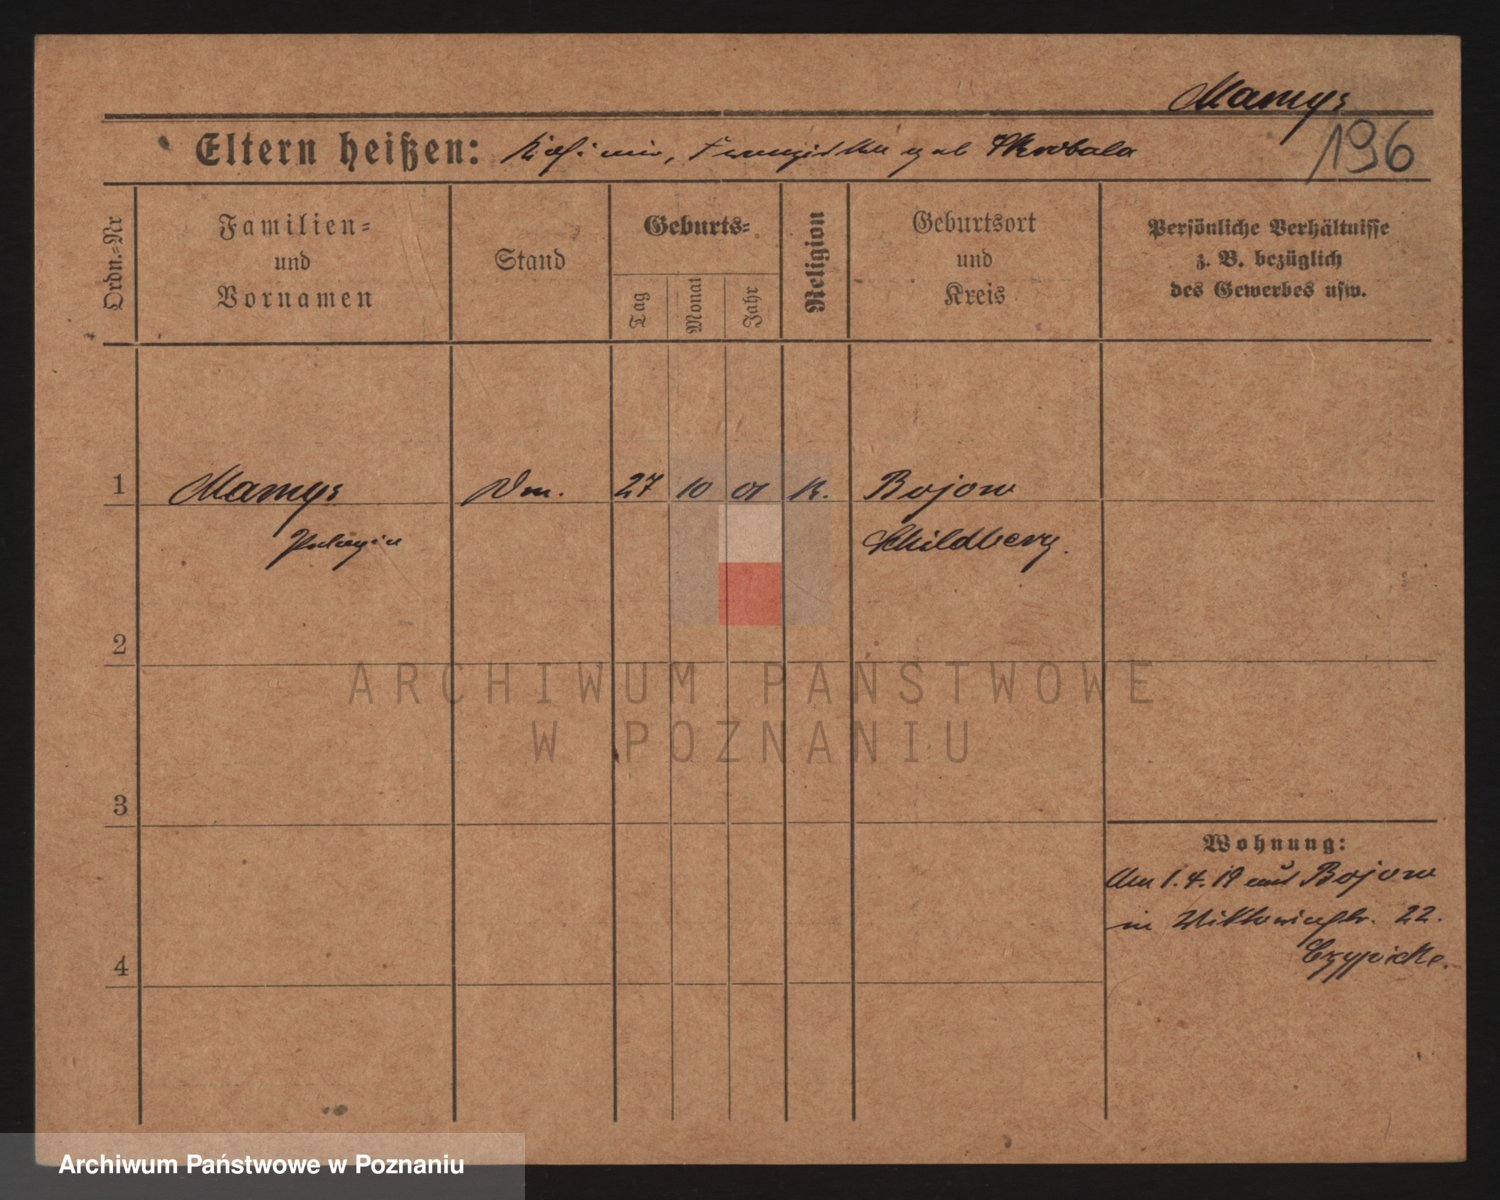 Mamys
196
Eltern heißen: Kasimir, Franziska geb Skrobala
Ordn.=Nr
Familien=
und
Vornamen
Stand
Geburts=
Tag
Monat
Jahr
Religion
Geburtsort
und
Kreis
Persönliche Verhältnisse
z. B. bezüglich
des Gewerbes usw.
1 Mamys 27 10 01 K. Bojow
Pelagia Schildberg.
2
ARCHIWUM PAŃSTWOWE
W POZNANIU
3
Wohnung:
Am 1.4.19 aus Bojow
in Viktoriastr. 22.
4
Archiwum Państwowe w Poznaniu